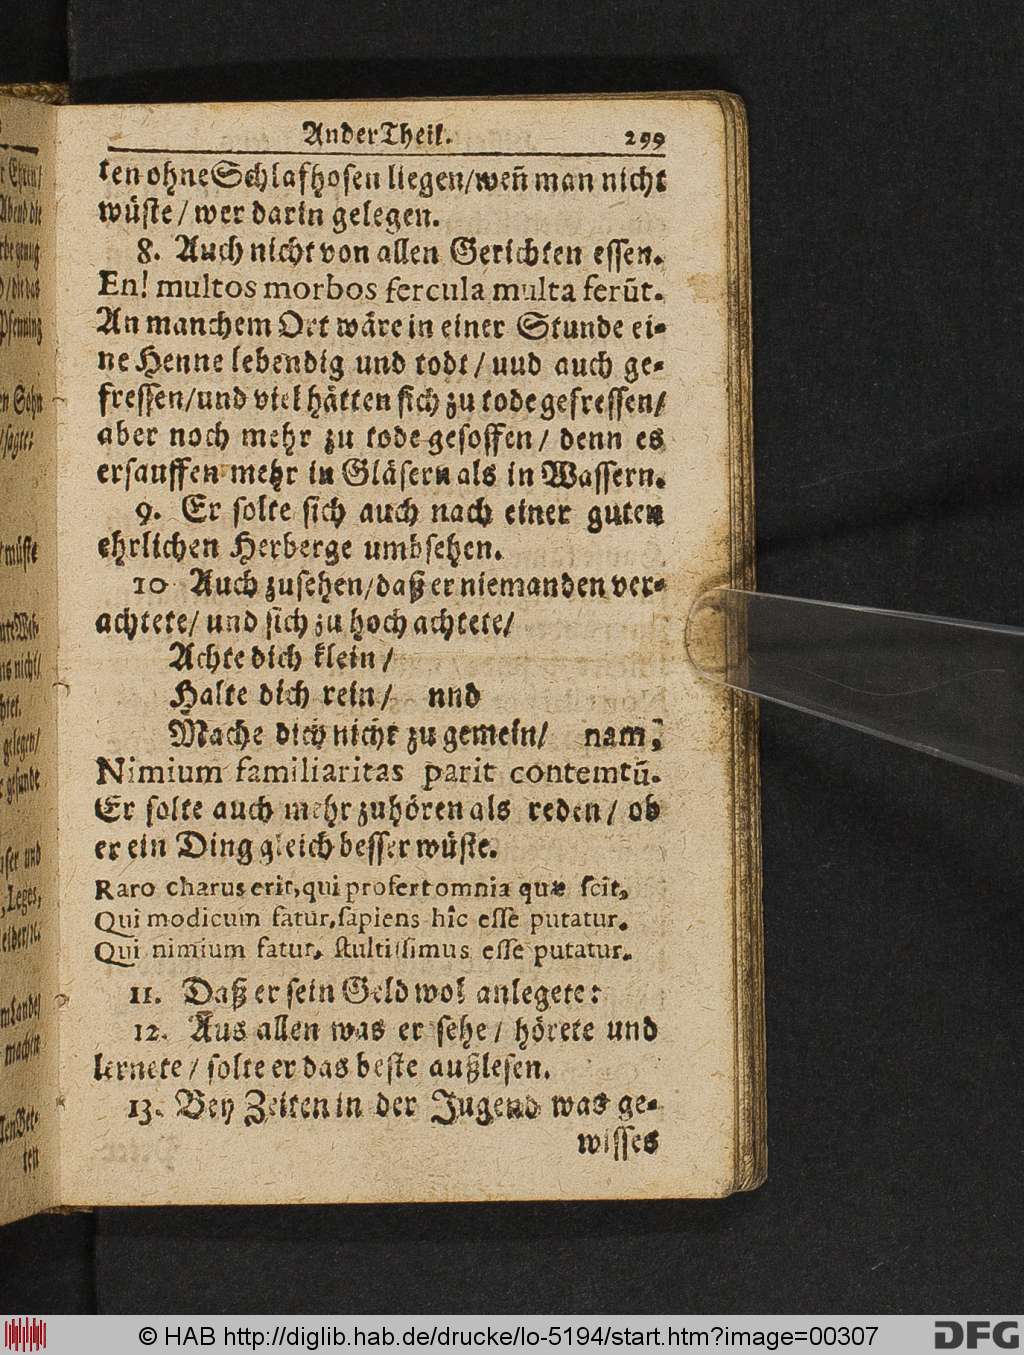 Ander Theil. 299
ten ohne Schlafhosen liegen/ weñ man nicht
wüste/ wer darin gelegen.
8. Auch nicht von allen Gerichten essen.
En! multos morbos fercula multa ferūt.
An manchem Ort wäre in einer Stunde ei-
ne Henne lebendig und todt/ uud auch ge-
fressen/ und viel hätten sich zu tode gefressen/
aber noch mehr zu tode gesoffen/ denn es
ersauffen mehr in Gläsern als in Wassern.
9. Er solte sich auch nach einer guten
ehrlichen Herberge umbsehen.
10 Auch zusehen/ daß er niemanden ver-
achtete/ und sich zu hoch achtete/
Achte dich klein/
Halte dich rein/ und
Mache dich nicht zu gemein/ nam,
Nimium familiaritas parit contemtū.
Er solte auch mehr zuhören als reden/ ob
er ein Ding gleich besser wüste.
Raro charus erit, qui profert omnia quæ scit,
Qui modicum fatur, sapiens hîc esse putatur.
Qui nimium fatur, stultissimus esse putatur.
11. Daß er sein Geld wol anlegete:
12. Aus allen was er sehe/ hörete und
lernete/ solte er das beste außlesen.
13. Bey Zeiten in der Jugend was ge-
wisses
© HAB http://diglib.hab.de/drucke/lo-5194/start.htm?image=00307
DFG